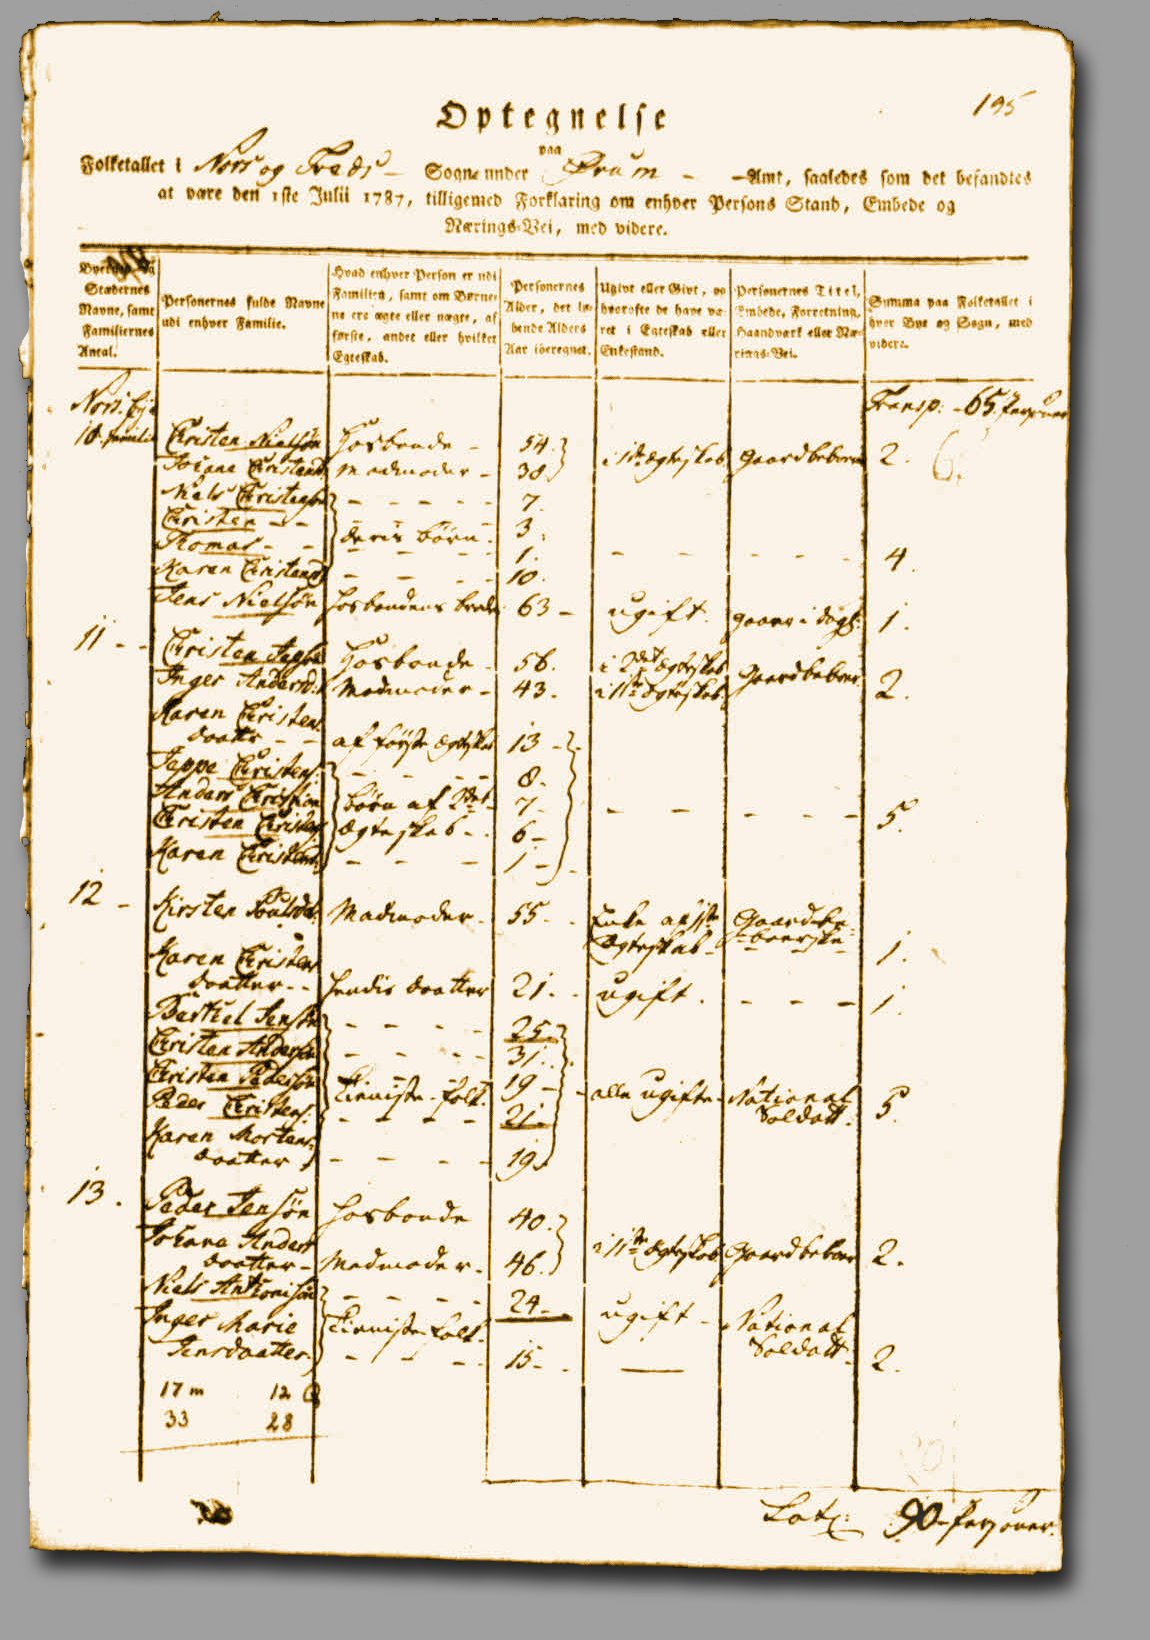 195
Optegnelse
paa
Folketallet i Nors og Tveds - Sogne under Ørum - Amt, saaledes som det befandtes
at være den 1ste Julii 1787, tilligemed Forklaring om enhver Persons Stand, Embede og
Nærings-Vei, med videre.
Byernes og Stædernes Navne, samt Familiernes Antal.
Personernes fulde Navne udi enhver Familie.
Hvad enhver Person er udi Familien, samt om Børnene ere ægte eller uægte, af første, andet eller hvilket Egteskab.
Personernes Alder, det løbende Alders Aar iberegnet.
Ugivt eller Givt, og hvorofte de have været i Egteskab eller Enkestand.
Personernes Titel, Embede, Forretning, Haandværk eller Nærings-Vei.
Summa paa Folketallet i hver Bye og Sogn, med videre.
Nors Bye Transp: - 65 Personer
10 familie Christen Nielsøn Hosbonde - 54. i 1te Ægteskab Gaardbeboere 2.
Johane Christensd Madmoder - 38
Niels Christensøn - - - - - 7.
Christen - - deris Børn - 3.
Thomas - - 1. - - - - 4.
Karen Christensd - - - 10.
Jens Nielsøn Hosbondens broder 63 - ugift. 1.
11 - - Christen Hosbonde - 56. i 2det Ægteskab Gaardbeboer 2.
Inger Andersd: Madmoder - 43. i 1te Ægteskab
Karen Christens
daatter - - af første Ægteskab 13 -
Jeppe Christens: - - - - 8.
Anders Christian børn af 2det 7 - - - - - 5.
Christen Christens Ægteskab - 6 -
Karen Christensd: - - - 1 -
12 - Kirsten Poulsd: Madmoder - 55 - Enke af 1te Gaardbe-
Ægteskab - boerske 1.
Karen Christens
daatter - - hendis daatter 21. - ugift. - - - 1.
Bertel Jensøn - - - - 25.
Christen Andersøn - - - - 31.
Christen Pedersøn Tienniste-folk. 19 - alle ugifte - National
Peder Christens: - - - - 21. Soldatt. 5.
Karen Mortens-
daatter - - - - 19
13. Peder Jensøn Hosbonde 40.
Johana Anders i 1te Ægteskab Gaardbeboer 2.
daatter - Madmoder. 46.
Niels Anthonisøn - - - - 24 -
Inger Marie Tienniste-folk - ugift - National
Jensdaatter. - - - 15 - Soldatt. 2.
17 m 12 Q
33 28
Lat: 90 - Personer.